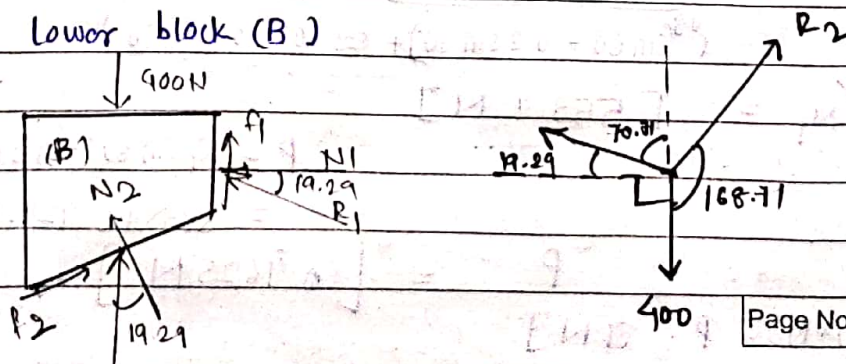 Lower block (B)
400N
(B)
f1
N1
19.29
R1
N2
f2
19.29
R2
70.71
19.29
168.71
400
Page No